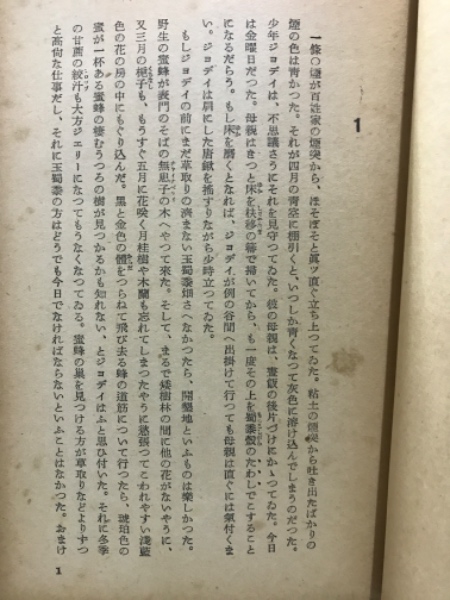 1
一條の煙が百姓家の煙突から、ほそぼそと眞ッ直ぐ立ち上つてゐた。粘土の煙突から吐き出たばかりの
煙の色は青かつた。それが四月の青空に棚引くと、いつしか青くなくなつて灰色に溶け込んでしまうのだつた。
少年ジョデイは、不思議さうにそれを見守つてゐた。彼の母親は、晝飯の後片づけにかゝつてゐた。今日
は金曜日だつた。母親はきつと床を扶移の箒で掃いてから、も一度その上を蜀黍殼のたわしでこすること
になるだらう。もし床を磨くとなれば、ジョデイが例の谷間へ出掛けて行つても母親は直ぐには氣付くま
い。ジョデイは肩にした唐鍬を搖すりながら少時立つてゐた。
もしジョデイの前にまだ草取りの濟まない玉蜀黍畑さへなかつたら、開墾地といふものは樂しかつた。
野生の蜜蜂が表門のそばの無患子の木へやつて來た。そして、まるで矮樹林の間に他の花がないやうに、
又三月の梔子も、もうすぐ五月に花咲く月桂樹や木蘭も忘れてしまつたやうに慾張つてこわれやすい淺藍
色の花の房の中にもぐり込んだ。黑と金色の體をつらねて飛び去る蜂の道筋について行つたら、琥珀色の
蜜が一杯ある蜜蜂の棲むうつろの樹が見つかるかも知れない、とジョデイはふと思ひ付いた。それに冬季
の甘蔗の絞汁も大方ジエリーになつてもうなくなつてゐる。蜜蜂の巣を見つける方が草取りなどよりずつ
と高尙な仕事だし、それに玉蜀黍の方はどうでも今日でなければならないといふことはなかつた。おまけ
1